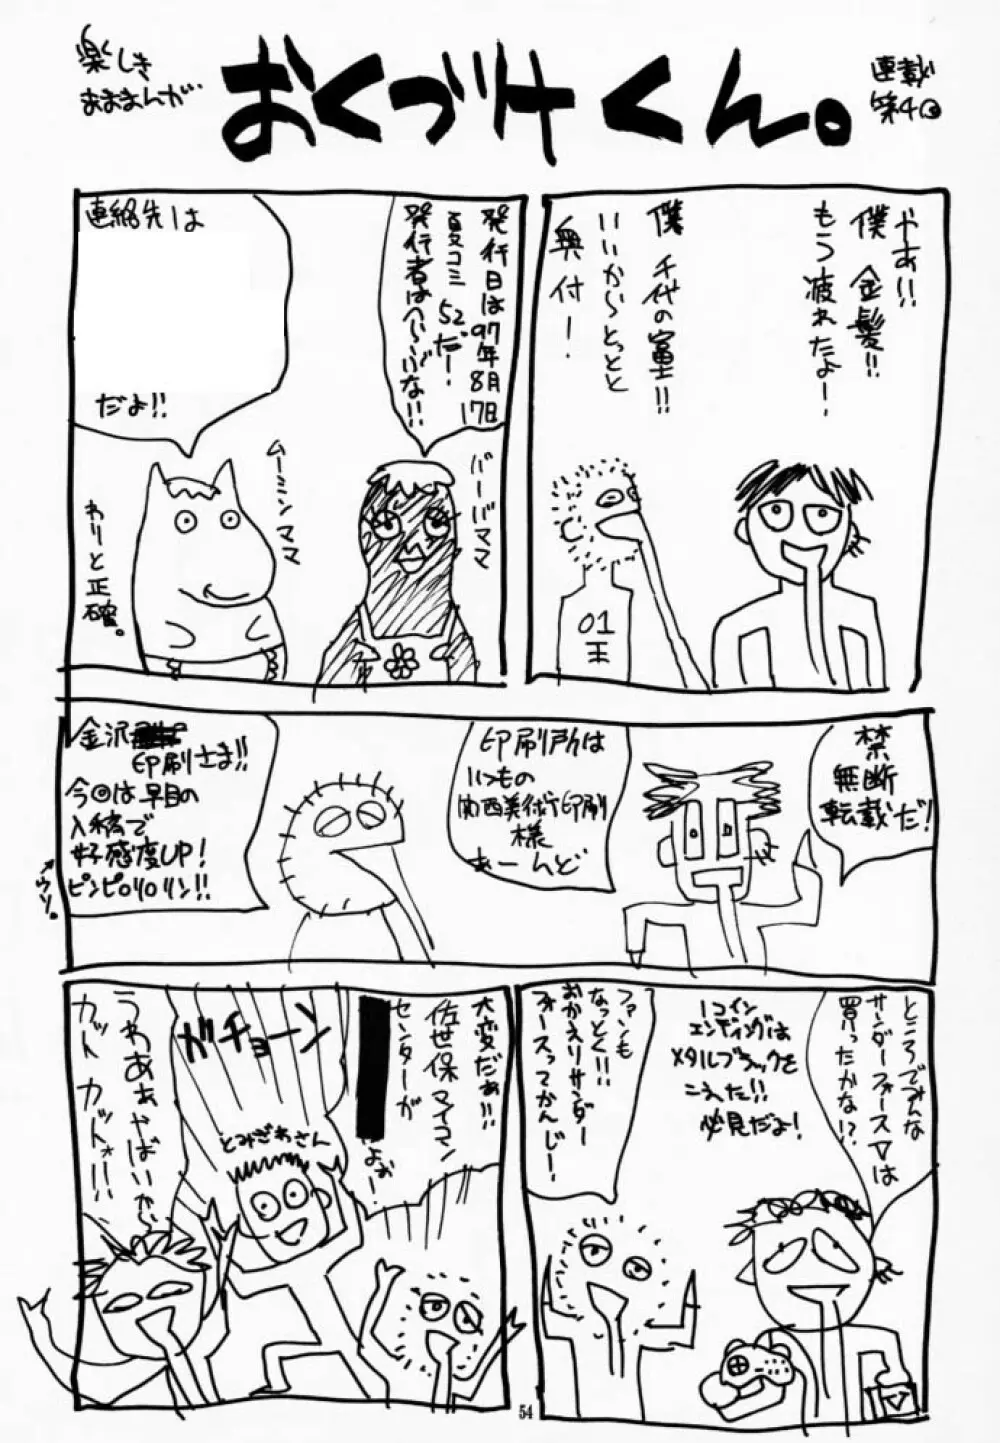 楽しき
おまけまんが
おくづけくん。
連載
第4回
やあ!!
僕 金髪!!
もう疲れたよー
僕 千代の富士!!
いいからとっとと
奥付!
01
王
発行日は97年8月17日
夏コミ 52だー!
発行者は
連絡先は
だよ!!
バーバママ
ムーミンママ
わりと正確。
禁
無断
転載だ!
印刷所は
いつもの
関西美術印刷
様
あーんど
金沢
印刷さま!!
今回は早目の
入稿で
好感度UP!
ピンピロリロリン!!
↗ウソ。
ところでみんな
サンダーフォースVは
買ったかな!?
1コイン
エンディングは
メタルブラックを
こえた!!
必見だよ!
ファンも
なっとく!!
おかえりサンダー
フォースってかんじ!
大変だぁ!!
佐世保マイコン
センターが
よぉー!
ガチョーン
とみざわさん
うわあぁやばいが
カット カットォ!!
54